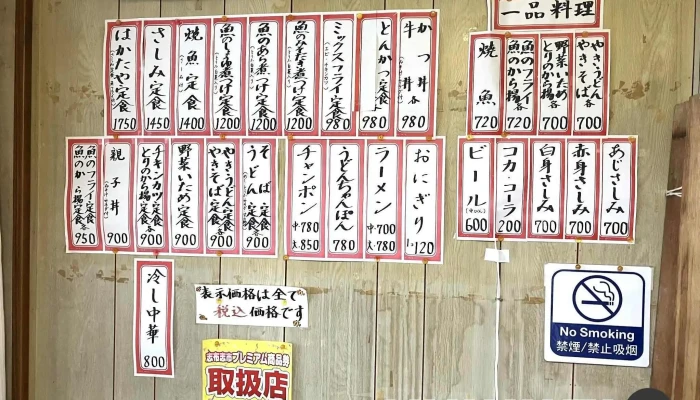 一品料理
かつ丼
牛丼
各
980
とんかつ定食
980
ミックスフライ定食
980
魚のみそだき煮つけ定食
1200
魚のあら煮つけ定食
1200
魚のしょうゆ煮つけ定食
1200
焼魚定食
1400
さしみ定食
1450
はかたや定食
1750
やきうどん
やきそば
各
700
野菜いため
とりのから揚
各
700
魚のフライ
魚のから揚
各
720
焼魚
720
おにぎり
1コ120
ラーメン
中・700
大・780
うどんちゃんぽん
780
チャンポン
中・780
大・850
そば定食
うどん定食
各
900
やきうどん定食
やきそば定食
各
900
野菜いため定食
900
チキンカツ定食
とりのから揚定食
各
900
親子丼
900
魚のフライ定食
魚のから揚定食
各
950
あじさしみ
700
赤身さしみ
700
白身さしみ
700
コカ・コーラ
200
ビール
600
冷し中華
800
表示価格は全て
税込価格です
志布志市プレミアム商品券
取扱店
No Smoking
禁煙/禁止吸烟